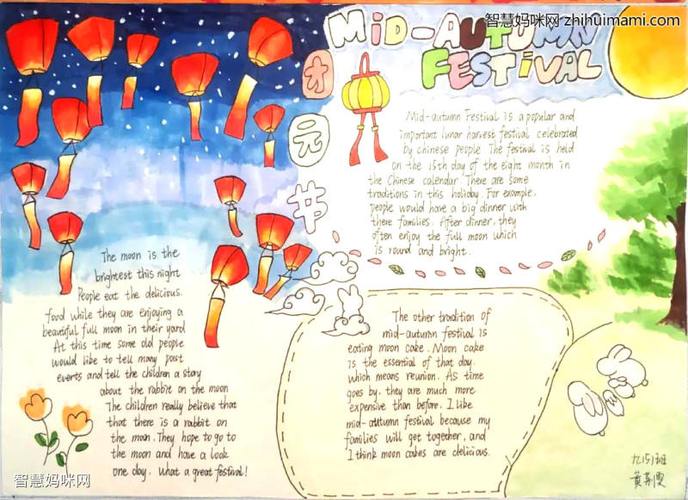 智慧妈咪网 zhihuimami.com
MiD-AUTUMN
FESTiVAL
团
圆
节
Mid-autumn Festival is a popular and
important lunar harvest festival celebrated
by chinese people The festival is held
on the 15th day of the eight month in
the Chinese calendar There are some
traditions in this holiday. For example,
people would have a big dinner with
there families. After dinner, they
often enjoy the full moon which
is round and bright.
The moon is the
brightest this night
People eat the delicious.
food while they are enjoying a
beautiful full moon in their yard
At this time some old people
would like to tell many past
events and tell the children a stay
about the rabbit on the moon
The children really believe that
that there is a rabbit on
the moon. They hope to go to
the moon and have a look
one day. What a great festival!
The other tradition of
mid-autumn festival is
eating moon cake. Moon cake
is the essential of that day
which means reunion. As time
goes by, they are much more
expensive than before. I like
mid-autumn festival because my
families will get together, and
I think moon cakes are delicious.
九(5)班
智慧妈咪网